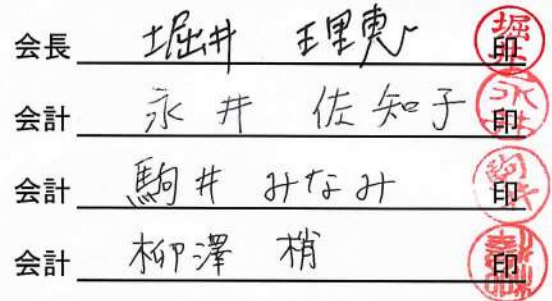 会長 堀井 理恵 印
会計 永井 佐知子 印
会計 駒井 みなみ 印
会計 柳澤 梢 印